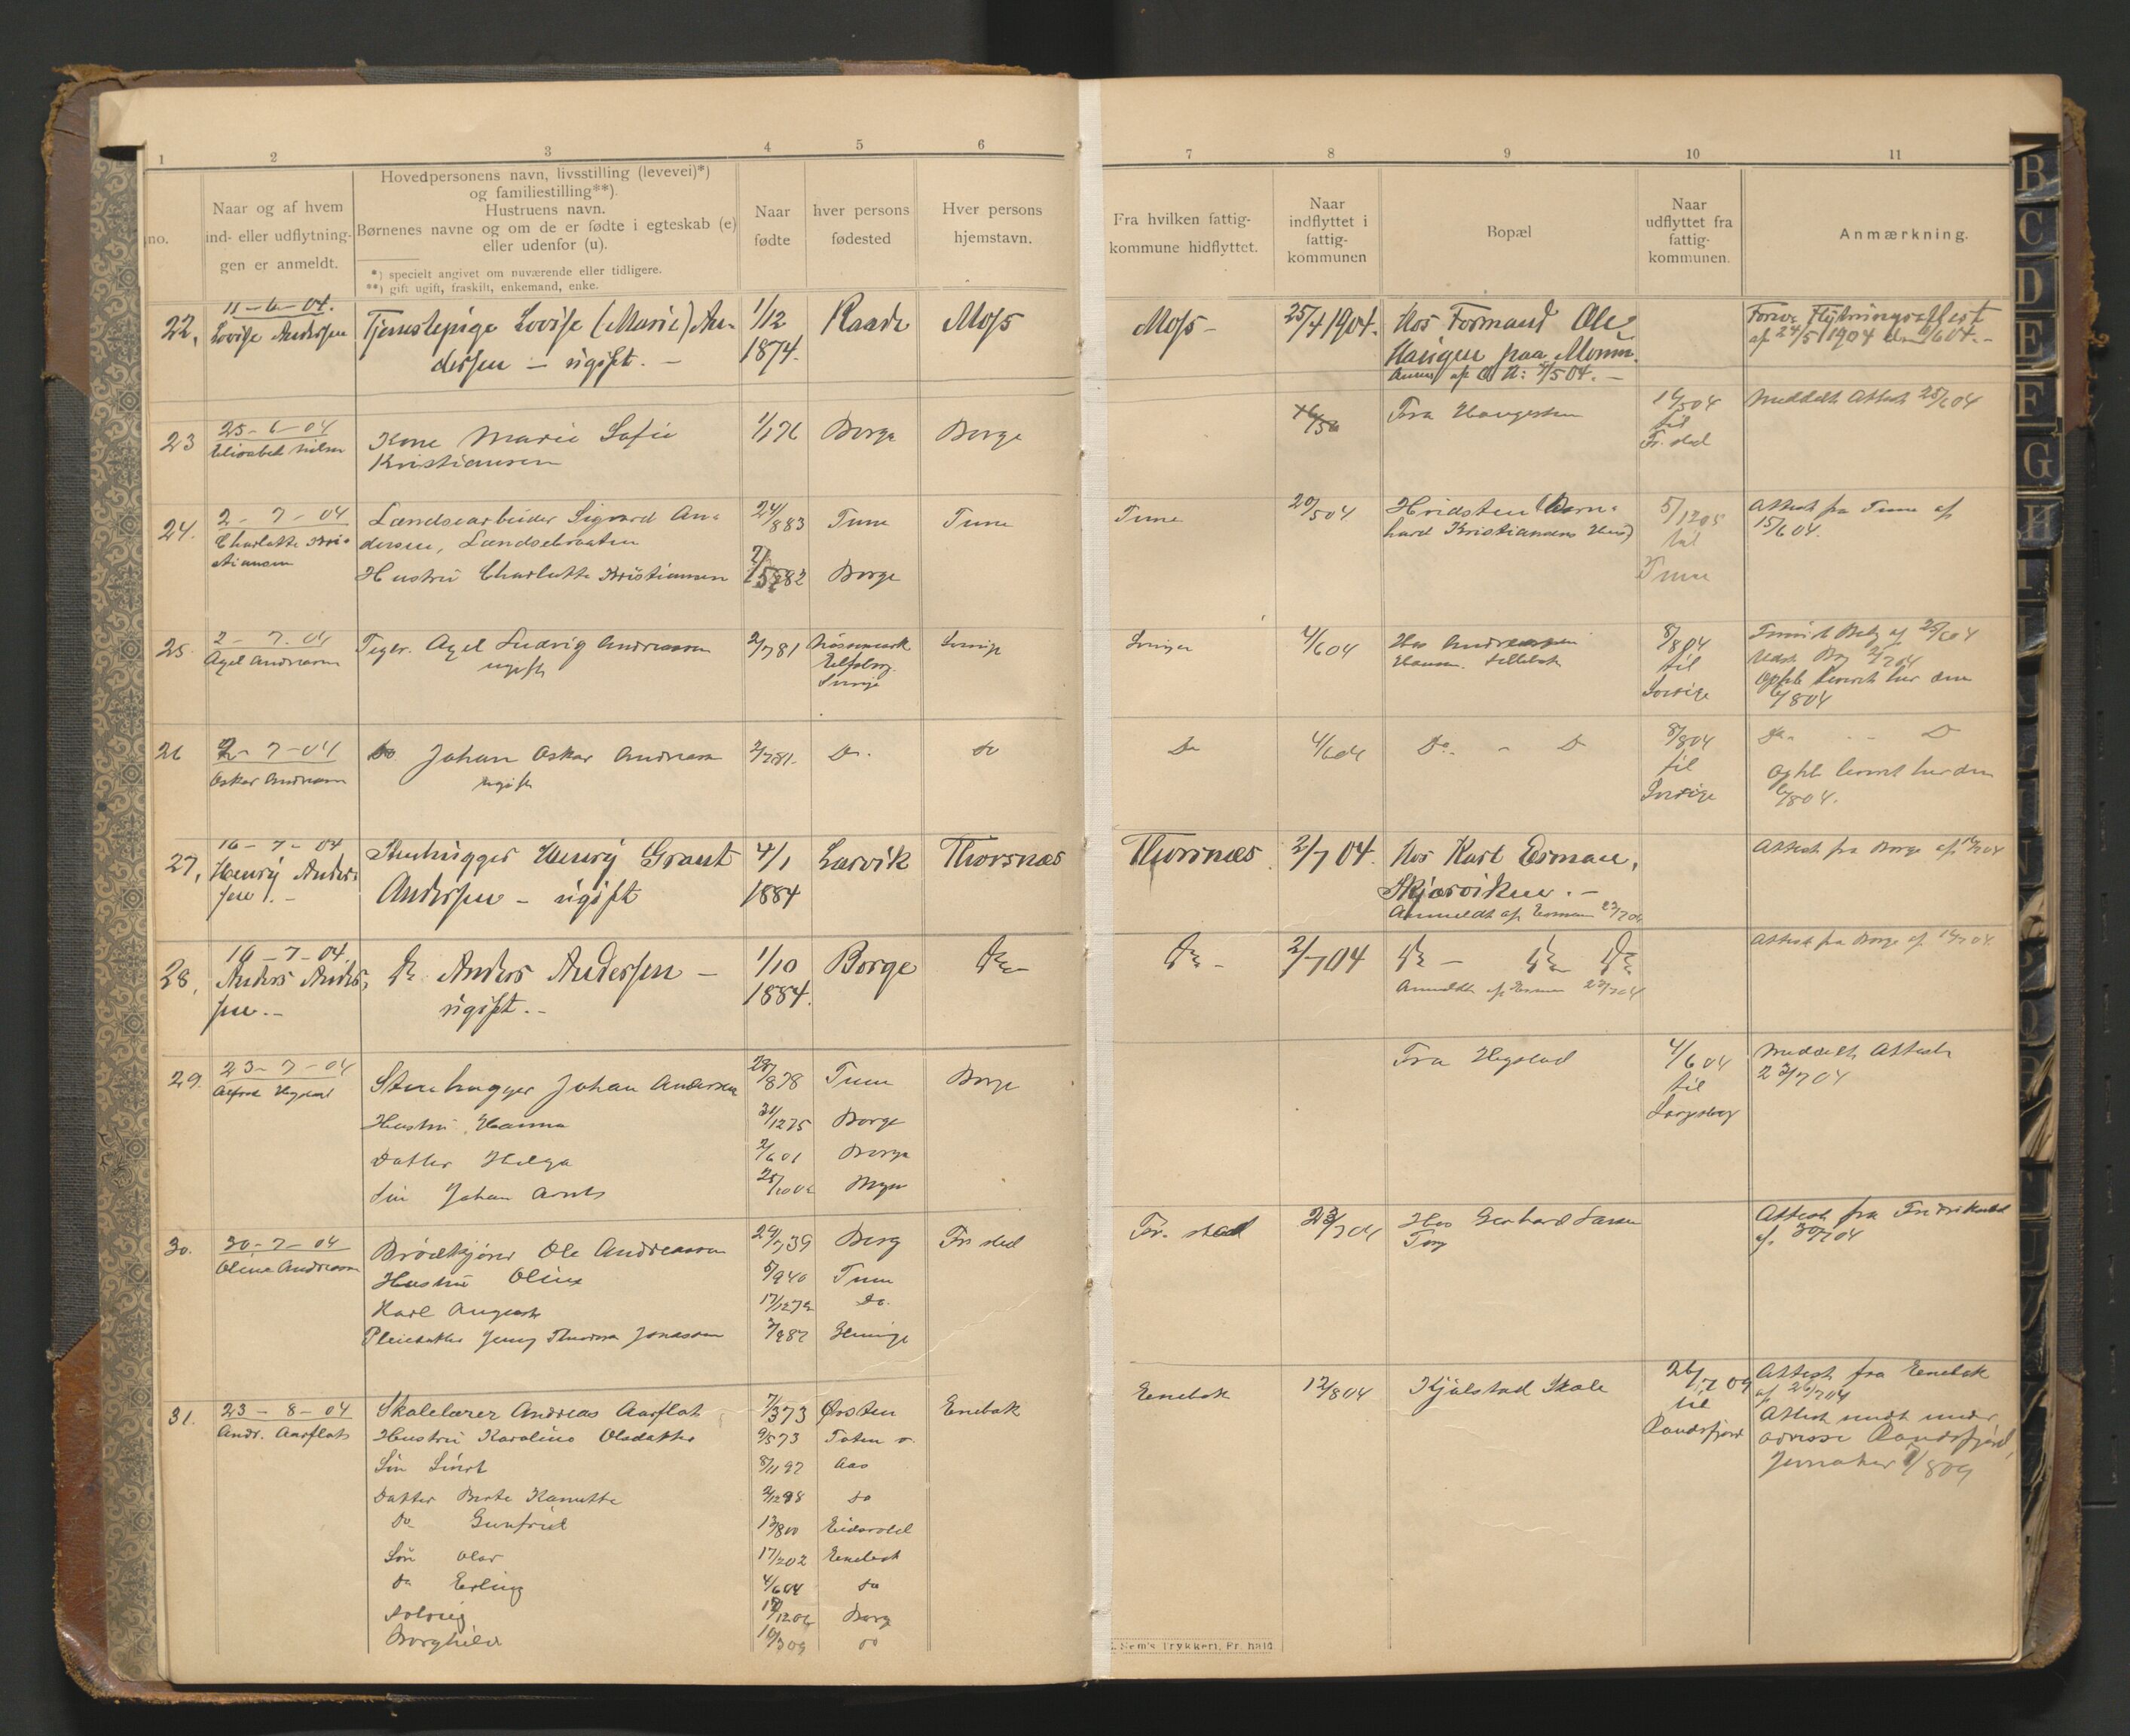 1 2 3 4 5 6 7 8 9 10 11
no.
Naar og af hvem
ind- eller udflytnin-
gen er anmeldt.
Hovedpersonens navn, livsstilling (levevei)*)
og familiestilling**).
Hustruens navn.
Børnenes navne og om de er fødte i egteskab (e)
eller udenfor (u).
*) specielt angivet om nuværende eller tidligere.
**) gift ugift, fraskilt, enkemand, enke.
Naar
fødte
hver persons
fødested
Hver persons
hjemstavn.
Fra hvilken fattig-
kommune hidflyttet.
Naar
indflyttet i
fattig-
kommunen
Bopæl
Naar
udflyttet fra
fattig-
kommunen.
Anmærkning.
22.
11-6-04.
Lovise Andersen
Tjenestepige Lovise (Marie) An-
dersen - ugift. -
1/12
1874.
Raade
Moss
Moss -
25/4 1904.
Hos Formand Ole
Haugen paa
af 24/5 1904
23
25-6-04
Elisabet Nilsen
Kone Marie Sofie
Kristiansen
1/1 76
Borge
Borge
Fra Haugesten
16/5 04
til
Fr. stad
Meddelt Attest 25/6 04
24.
2-7-04
Charlotte Kri-
stiansen
Landsearbeider Sigvard An-
dersen,
Hustru Charlotte Kristiansen
24/8 83
Tune
Borge
Tune
Tune
20/5 04
Hvidsten (Bern-
hard Kristiansens Hus)
5/12 05
til
Tune
Attest fra Tune af
15/6 04.
25.
2-7-04
Axel Andreasen
Teglv. Axel Ludvig Andreasen
ugift
2/7 81
Elfsborg
Sverige
Sverige
Sverige
4/6 04
Hos Andreas
Hansen. Lillebæk
8/8 04
til
Sverige
6/8 04
26
2-7-04
Oskar Andreasen
Do Johan Oskar Andreasen
ugift
2/7 81.
Do.
Do
Do
4/6 04
Do. - Do
8/8 04
til
Sverige
Do - - Do
6/8 04.
27,
16-7-04
Henry Ander-
sen. -
Stenhugger Henry Grant
Andersen - ugift
4/1
1884
Larvik
Thorsnæs
Thorsnæs
2/7 04.
Hos Karl Esman,
Skjærviken. -
Anmeldt af Esman 23/7 04
Attest fra Borge af 14/7 04
28,
16-7-04.
Anders Ander-
sen. -
Do Anders Andersen -
ugift. -
1/10
1884.
Borge
Do -
Do -
2/7 04
Do - Do Do
Anmeldt af Esman 23/7 04
Attest fra Borge af 14/7 04.
29.
23-7-04
Stenhugger Johan Andersen
Hustru Hanna
Datter Helga
Søn Johan Arnts
8 78
31/12 75
2/6 01
Tune
Borge
Borge
Borge
Fra Hegstad
4/6 04
til
Sarpsborg
Meddelt Attest
23/7 04
30.
30-7-04
Oline Andreasen
Brødkjører Ole Andreasen
Hustru Oline
Karl August
Pleiedatter Jenny Jonassen
24/7 39
5/9 40
17/12 72
Berg
Tune
Do.
Glemminge
Fr. stad
Fr. stad
23/7 04
Hos Gerhard Larsen
Torp
Attest fra Fredrikstad
af. 30/7 04
31.
23-8-04
Andr. Aarflot
Skolelærer Andreas Aarflot
Hustru Karoline Olsdatter
Søn Sivert
Datter Berte Kanutte
Do Gunfrid
Søn Olav
Do Erling
Solveig
Borghild
7/3 73
9/5 73
8/11 97
2/12 98
13/8 00
17/2 02
4/6 04
10/3 09
Ørsten
Toten
Aas
do
Eidsvold
Enebak
do
Borge
do
Enebak
Enebak
12/8 04
Kjølstad Skole
26/7 09
til
Randsfjord
Attest fra Enebak
af 26/7 04
Attest sendt under
adresse Randsfjord,
Jevnaker 9/8 09
. Nem's Trykkeri, Fr. hald
B
C
D
E
F
G
H